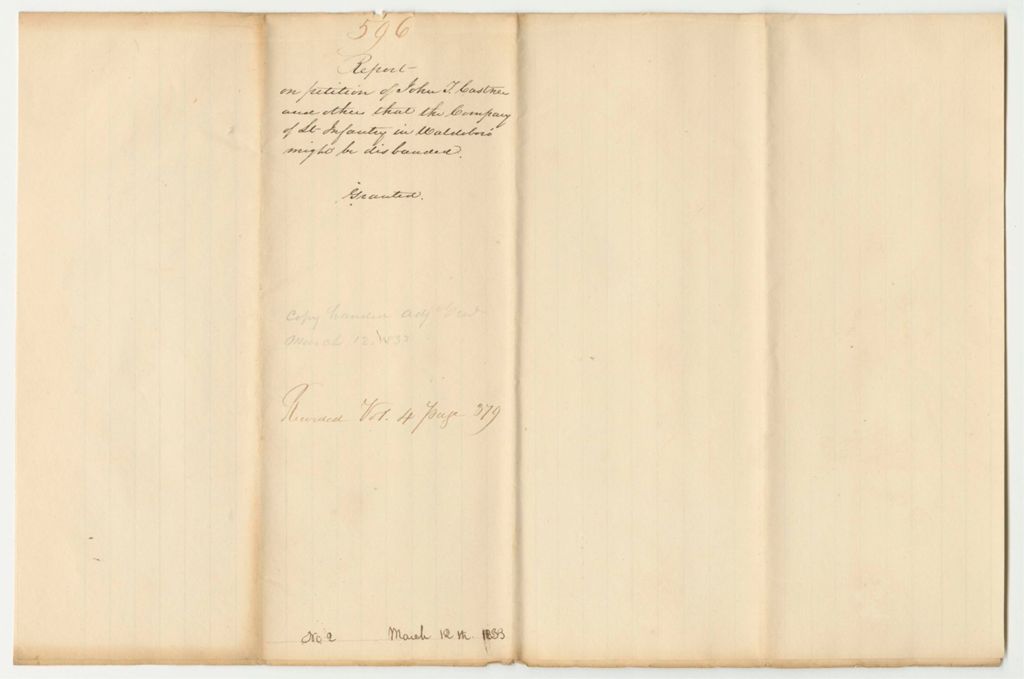 596
Report
on petition of John T. Castner
and others that the Company
of Lt Infantry in Waldoboro
might be disbanded.
Granted.
Copy handed Adj
March 12. 1833
Recorded Vol. 4 Page 379
No 2 March 12 th. 1833